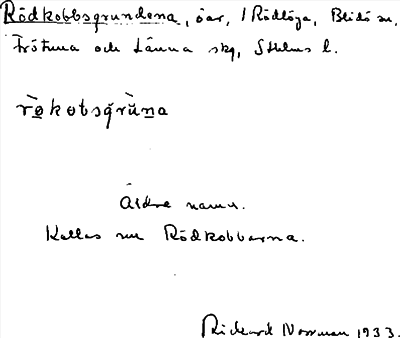 Rödkobbsgrundena, öar, i Rödlöga, Blidö sn,
Frötuna och Länna skg, Sthlms l.
rø̀kobsgrùna
Äldre namn.
Kallas nu Rödkobbarna.
Rickard Norrman 1933.